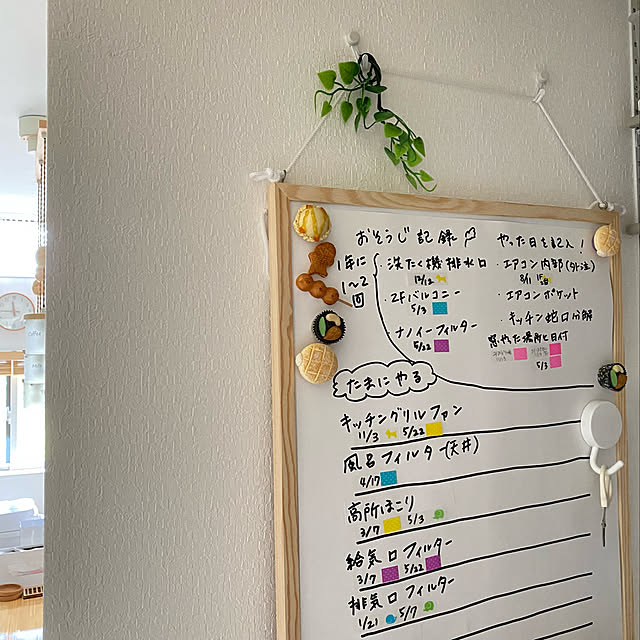 おそうじ記録
やった日を記入!
1年に
1〜2
回
・洗たく機排水口
10/12
・2Fバルコニー
5/3
ナノイーフィルター
5/22
・エアコン内部(外注)
8/11
・エアコンポケット
・キッチン蛇口分解
窓やった場所と日付
5/3
たまにやる
キッチングリルファン
11/3 5/22
風呂フィルター(天井)
4/17
高所ほこり
3/7 5/3
給気口フィルター
3/7 5/22
排気口フィルター
1/21 5/7